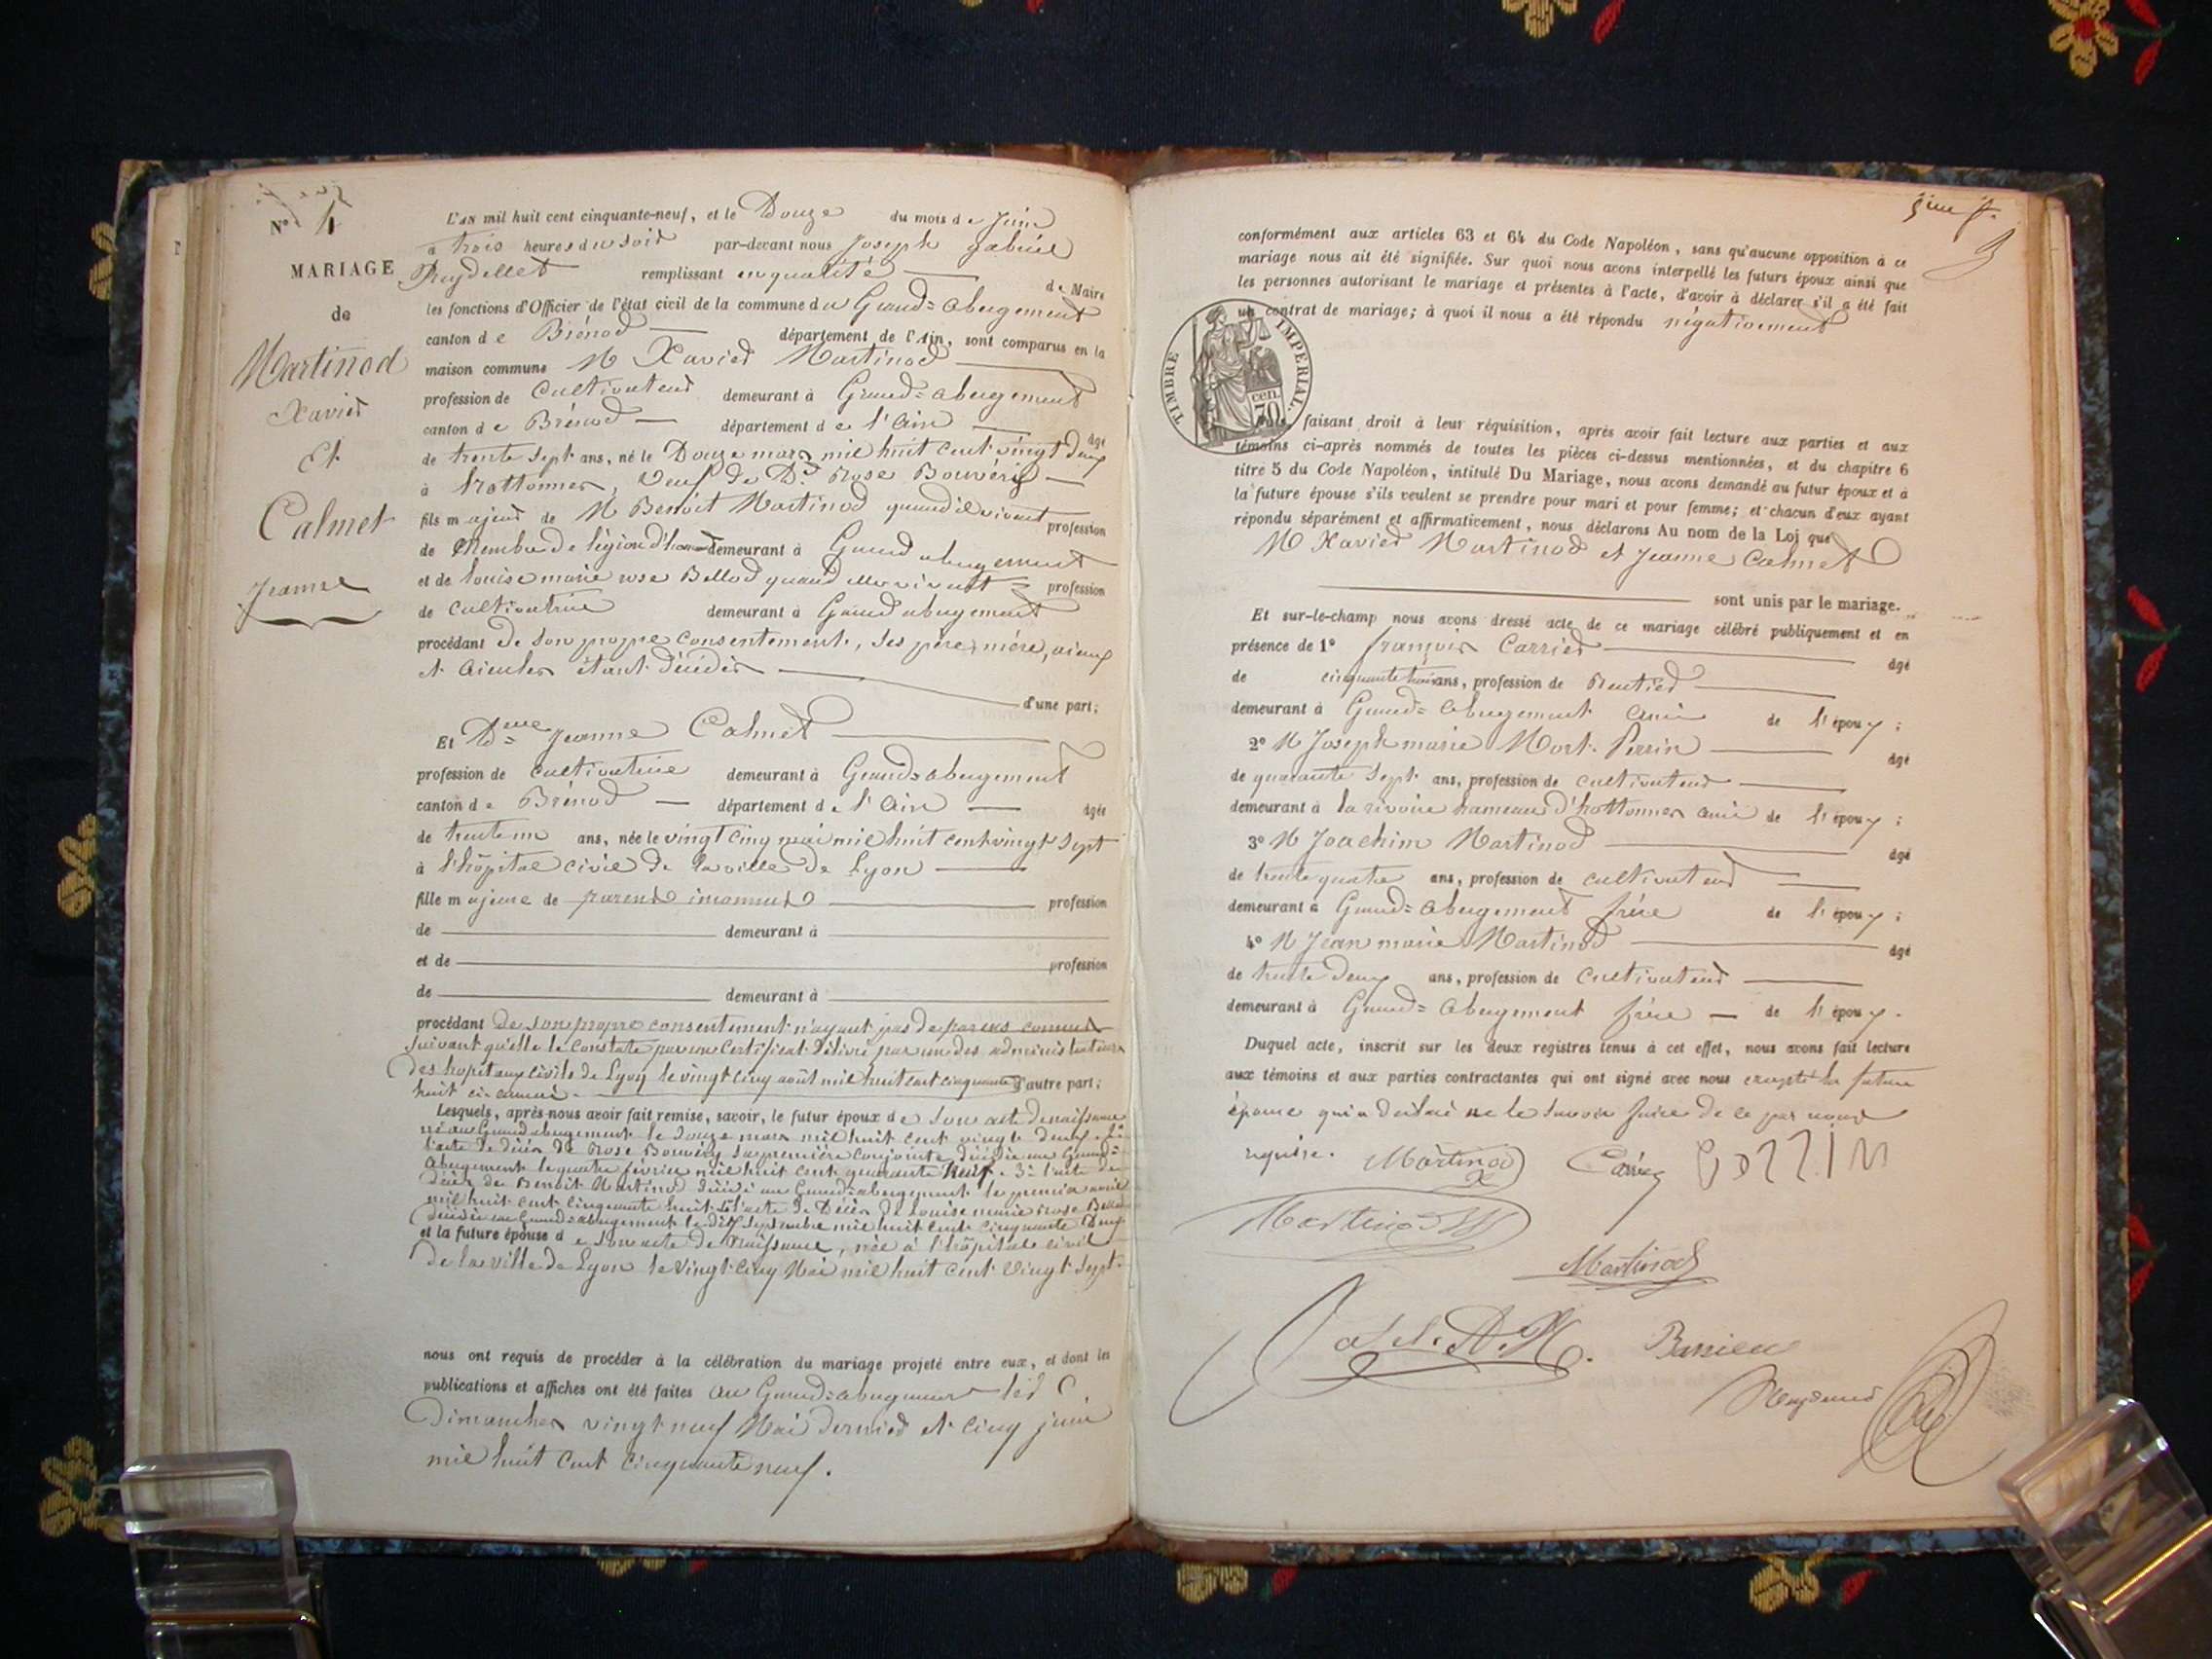 N° 4
MARIAGE
de
Martinod
Xavier
Et
Calmet
Jeanne
L'AN mil huit cent cinquante-neuf, et le Douze du mois de Juin
à trois heures du soir par-devant nous Joseph Gabriel
remplissant en qualité de Maire
les fonctions d'Officier de l'état civil de la commune du Grand=abergement
canton de Brénod département de l'Ain, sont comparus en la
maison commune M Xavier Martinod
profession de cultivateur demeurant à Grand=abergement
canton de Brénod département de l'Ain âgé
de trente sept ans, né le Douze mars mil huit cent vingt deux
à hottonnes, veuf de De Rose Bouvéry
fils majeur de M Benoit Martinod quand il vivait profession
de Membre de légion d'honneur demeurant à Grand abergement
et de louise marie rose Bellod quand elle vivait profession
de cultivatrice demeurant à Grand abergement
procédant de son propre consentement, ses père, mère, aieux
et aieules étant décédés
d'une part;
Et Dme Jeanne Calmet
profession de cultivatrice demeurant à Grand=abergement
canton de Brénod département de l'Ain âgée
de trente un ans, née le vingt cinq mai mil huit cent vingt sept
à l'hôpital civil de la ville de Lyon
fille majeure de parents inconnus profession
de demeurant à
et de profession
de demeurant à
procédant de son propre consentement n'ayant pas de parens connus
suivant qu'elle le constate par un certificat délivré par un des administrateurs
des hopitaux civils de Lyon le vingt cinq août mil huit cent cinquante d'autre part;
huit ci-annexé.
Lesquels, après nous avoir fait remise, savoir, le futur époux de son acte de naissance
né au Grand abergement le douze mars mil huit cent vingt deux. 2°
l'acte de décès de Rose Bouvéry sa première conjointe décédée au Grand=
abergement le quatre février mil huit cent quarante neuf. 3° l'acte de
décès de Benoit Martinod décédé au Grand=abergement le premier avril
mil huit cent cinquante huit 4° l'acte de Décès de Louise marie rose Bellod
décédée au Grand=abergement le dix septembre mil huit cent cinquante deux
et la future épouse de son acte de Naissance, née à l'hôpital civil
de la ville de Lyon le vingt cinq Mai mil huit cent vingt sept.
nous ont requis de procéder à la célébration du mariage projeté entre eux, et dont les
publications et affiches ont été faites au Grand=abergement les
Dimanches vingt neuf Mai dernier et cinq juin
mil huit cent cinquante neuf.
conformément aux articles 63 et 64 du Code Napoléon, sans qu'aucune opposition à ce
mariage nous ait été signifiée. Sur quoi nous avons interpellé les futurs époux ainsi que
les personnes autorisant le mariage et présentes à l'acte, d'avoir à déclarer s'il a été fait
un contrat de mariage; à quoi il nous a été répondu négativement
TIMBRE IMPÉRIAL.
70 cen.
faisant droit à leur réquisition, après avoir fait lecture aux parties et aux
témoins ci-après nommés de toutes les pièces ci-dessus mentionnées, et du chapitre 6
titre 5 du Code Napoléon, intitulé Du Mariage, nous avons demandé au futur époux et à
la future épouse s'ils veulent se prendre pour mari et pour femme; et chacun d'eux ayant
répondu séparément et affirmativement, nous déclarons Au nom de la Loi que
M Xavier Martinod et Jeanne Calmet
sont unis par le mariage.
Et sur-le-champ nous avons dressé acte de ce mariage célébré publiquement et en
présence de 1° françois Carrier âgé
de cinquante trois ans, profession de Rentier
demeurant à Grand=abergement ami de l'époux;
2° M Joseph marie Mort-Perrin âgé
de quarante sept ans, profession de cultivateur
demeurant à la rivoire hameau d'hottonnes ami de l'époux;
3° M Joachim Martinod âgé
de trente quatre ans, profession de cultivateur
demeurant à Grand=abergement frère de l'époux;
4° M Jean marie Martinod âgé
de trente deux ans, profession de cultivateur
demeurant à Grand=abergement frère de l'époux.
Duquel acte, inscrit sur les deux registres tenus à cet effet, nous avons fait lecture
aux témoins et aux parties contractantes qui ont signé avec nous excepté la future
épouse qui a déclaré ne le savoir faire de ce par nous
requise. Martinod Carrier
Martinod
Martinod